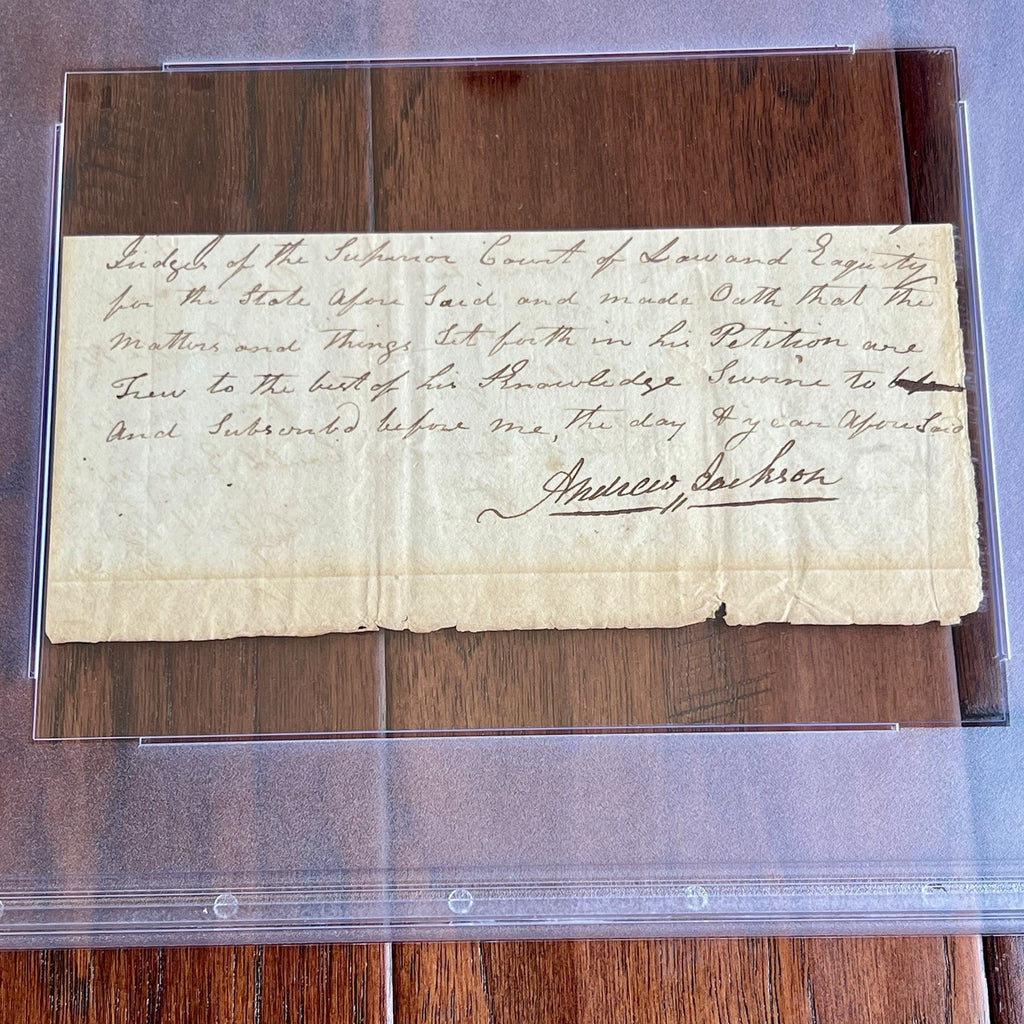 Judges of the Superior Court of Law and Eaquity
for the State afore Said and made Oath that the
Matters and things Set forth in his Petition are
Trew to the best of his Knowledge Sworne to
And Subscribd before me, the day & year aforeSaid
Andrew Jackson